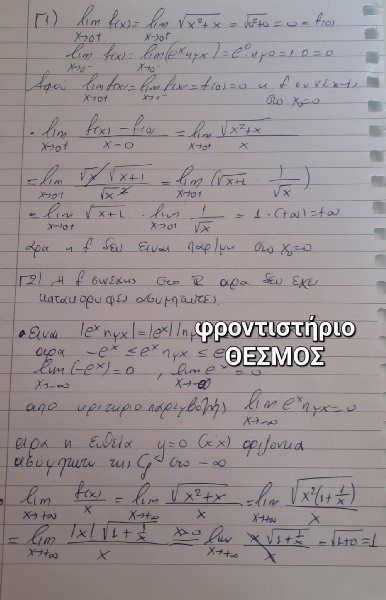 Γ1) lim x→0+ f(x) = lim x→0+ √x²+x = √0²+0 = 0 = f(0)
lim x→0- f(x) = lim x→0- (eˣημx) = e⁰·ημ0 = 1·0 = 0
Αφού lim x→0+ f(x) = lim x→0- f(x) = f(0) = 0 η f συνεχής
στο x₀=0
• lim x→0+ f(x)-f(0) / x-0 = lim x→0+ √x²+x / x
= lim x→0+ √x √x+1 / √x² = lim x→0+ (√x+1 · 1/√x)
= lim x→0+ √x+1 · lim x→0+ 1/√x = 1·(+∞) = +∞
άρα η f δεν είναι παρ/μη στο x₀=0
Γ2) Η f συνεχής στο ℝ άρα δεν έχει
κατακόρυφες ασύμπτωτες.
• Είναι |eˣ ημx| = |eˣ| |ημ
φροντιστήριο
άρα -eˣ ≤ eˣ ημx ≤ e
ΘΕΣΜΟΣ
lim x→-∞ (-eˣ) = 0 , lim x→-∞ eˣ = 0
από κριτήριο παρεμβολής lim x→-∞ eˣημx = 0
άρα η ευθεία y=0 (x'x) οριζόντια
ασύμπτωτη της Cf στο -∞
• lim x→+∞ f(x)/x = lim x→+∞ √x²+x / x = lim x→+∞ √x²(1+1/x) / x
= lim x→+∞ |x| √1+1/x / x = x>0 lim x→+∞ x √1+1/x / x = √1+0 = 1